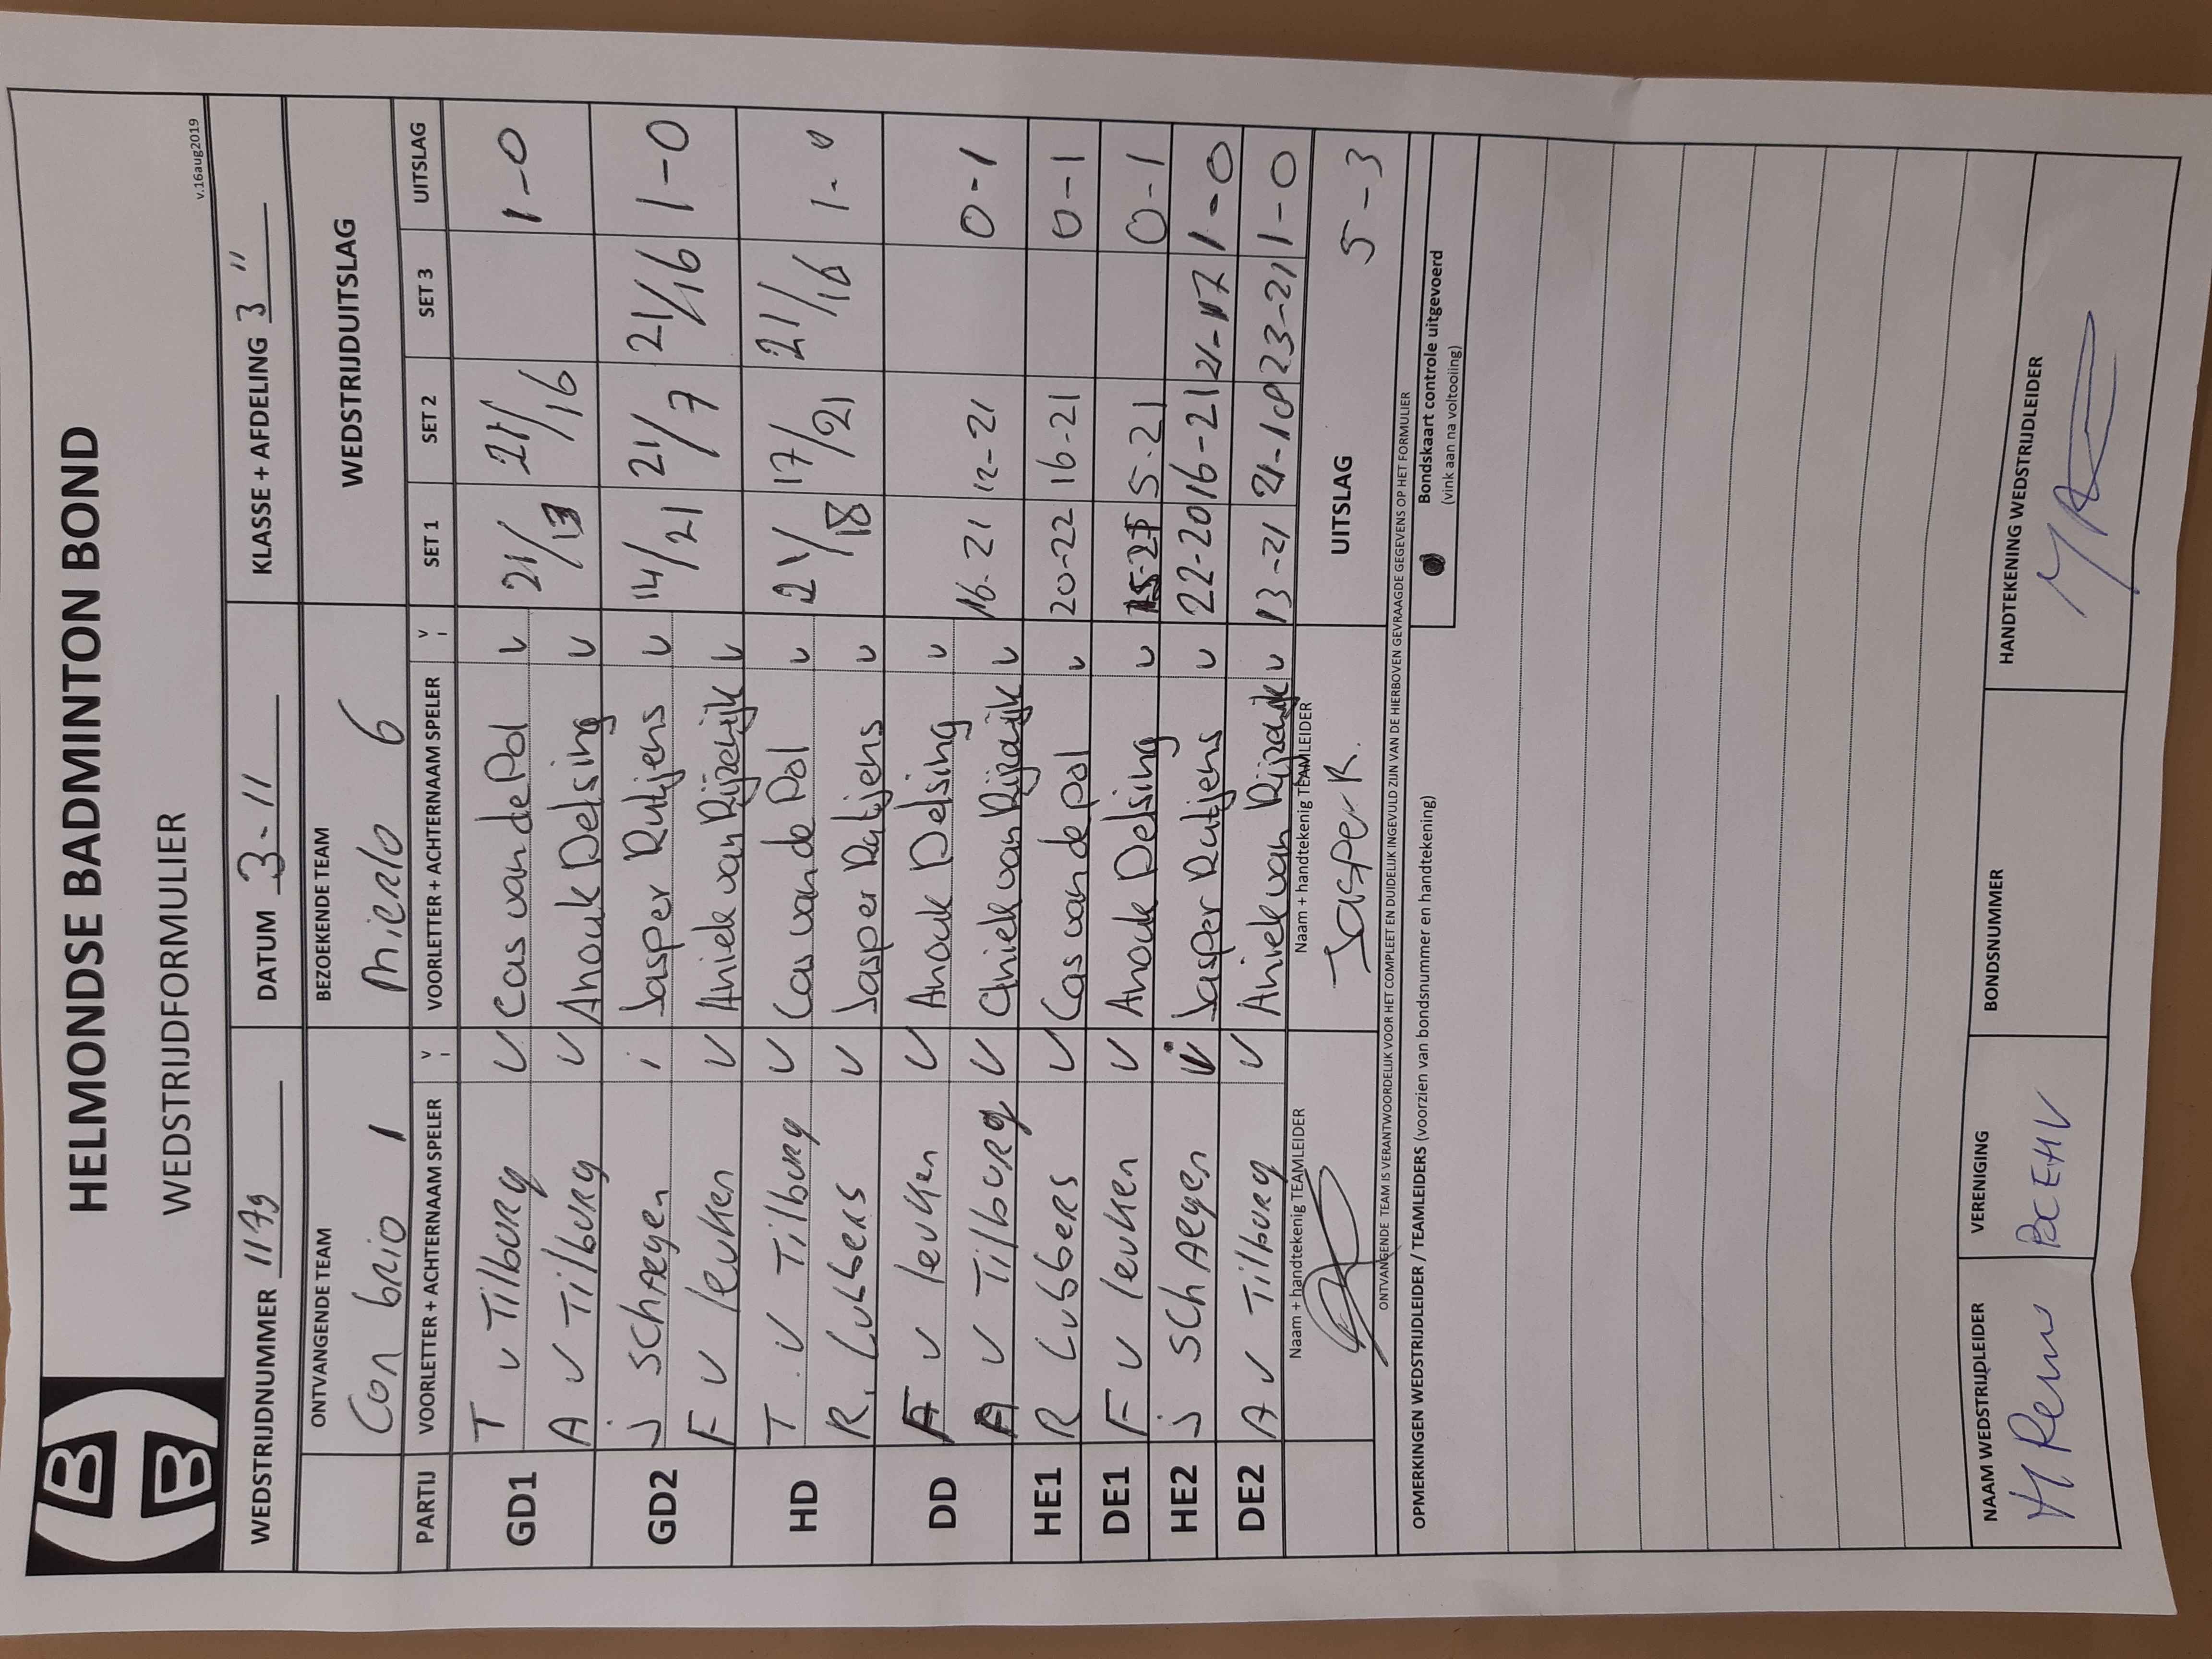 HBB
HELMONDSE BADMINTON BOND
WEDSTRIJDFORMULIER
v.16aug2019
WEDSTRIJDNUMMER 1179 DATUM 3-11 KLASSE + AFDELING 3 "
ONTVANGENDE TEAM BEZOEKENDE TEAM WEDSTRIJDUITSLAG
Con brio 1 Mierlo 6
PARTIJ VOORLETTER + ACHTERNAAM SPELER V I VOORLETTER + ACHTERNAAM SPELER V I SET 1 SET 2 SET 3 UITSLAG
GD1 T v Tilburg v Cas van de Pol v 21/13 21/16 1-0
A v Tilburg v Anouk Delsing v
GD2 j SchAegen i Jasper Rutjens v 14/21 21/7 21/16 1-0
F v leuken v Aniek van Rijzewijk v
HD T. v Tilburg v Cas van de Pol v 21/18 17/21 21/16 1-0
R. Lubbers v Jasper Rutjens v
DD F v leuken v Anouk Delsing v 16-21 12-21 0-1
A v Tilburg v Aniek van Rijzewijk v
HE1 R Lubbers v Cas van de pol v 20-22 16-21 0-1
DE1 F v leuken v Anouk Delsing v 15-21 5-21 0-1
HE2 j SchAegen v Jasper Rutjens v 22-20 16-21 21-17 1-0
DE2 A v Tilburg v Aniek van Rijzewijk v 13-21 21-18 23-21 1-0
Naam + handtekenig TEAMLEIDER Naam + handtekenig TEAMLEIDER UITSLAG 5-3
Jasper R.
ONTVANGENDE TEAM IS VERANTWOORDELIJK VOOR HET COMPLEET EN DUIDELIJK INGEVULD ZIJN VAN DE HIERBOVEN GEVRAAGDE GEGEVENS OP HET FORMULIER
OPMERKINGEN WEDSTRIJDLEIDER / TEAMLEIDERS (voorzien van bondsnummer en handtekening)
Bondskaart controle uitgevoerd
(vink aan na voltooiing)
NAAM WEDSTRIJDLEIDER VERENIGING BONDSNUMMER HANDTEKENING WEDSTRIJDLEIDER
BCEHV